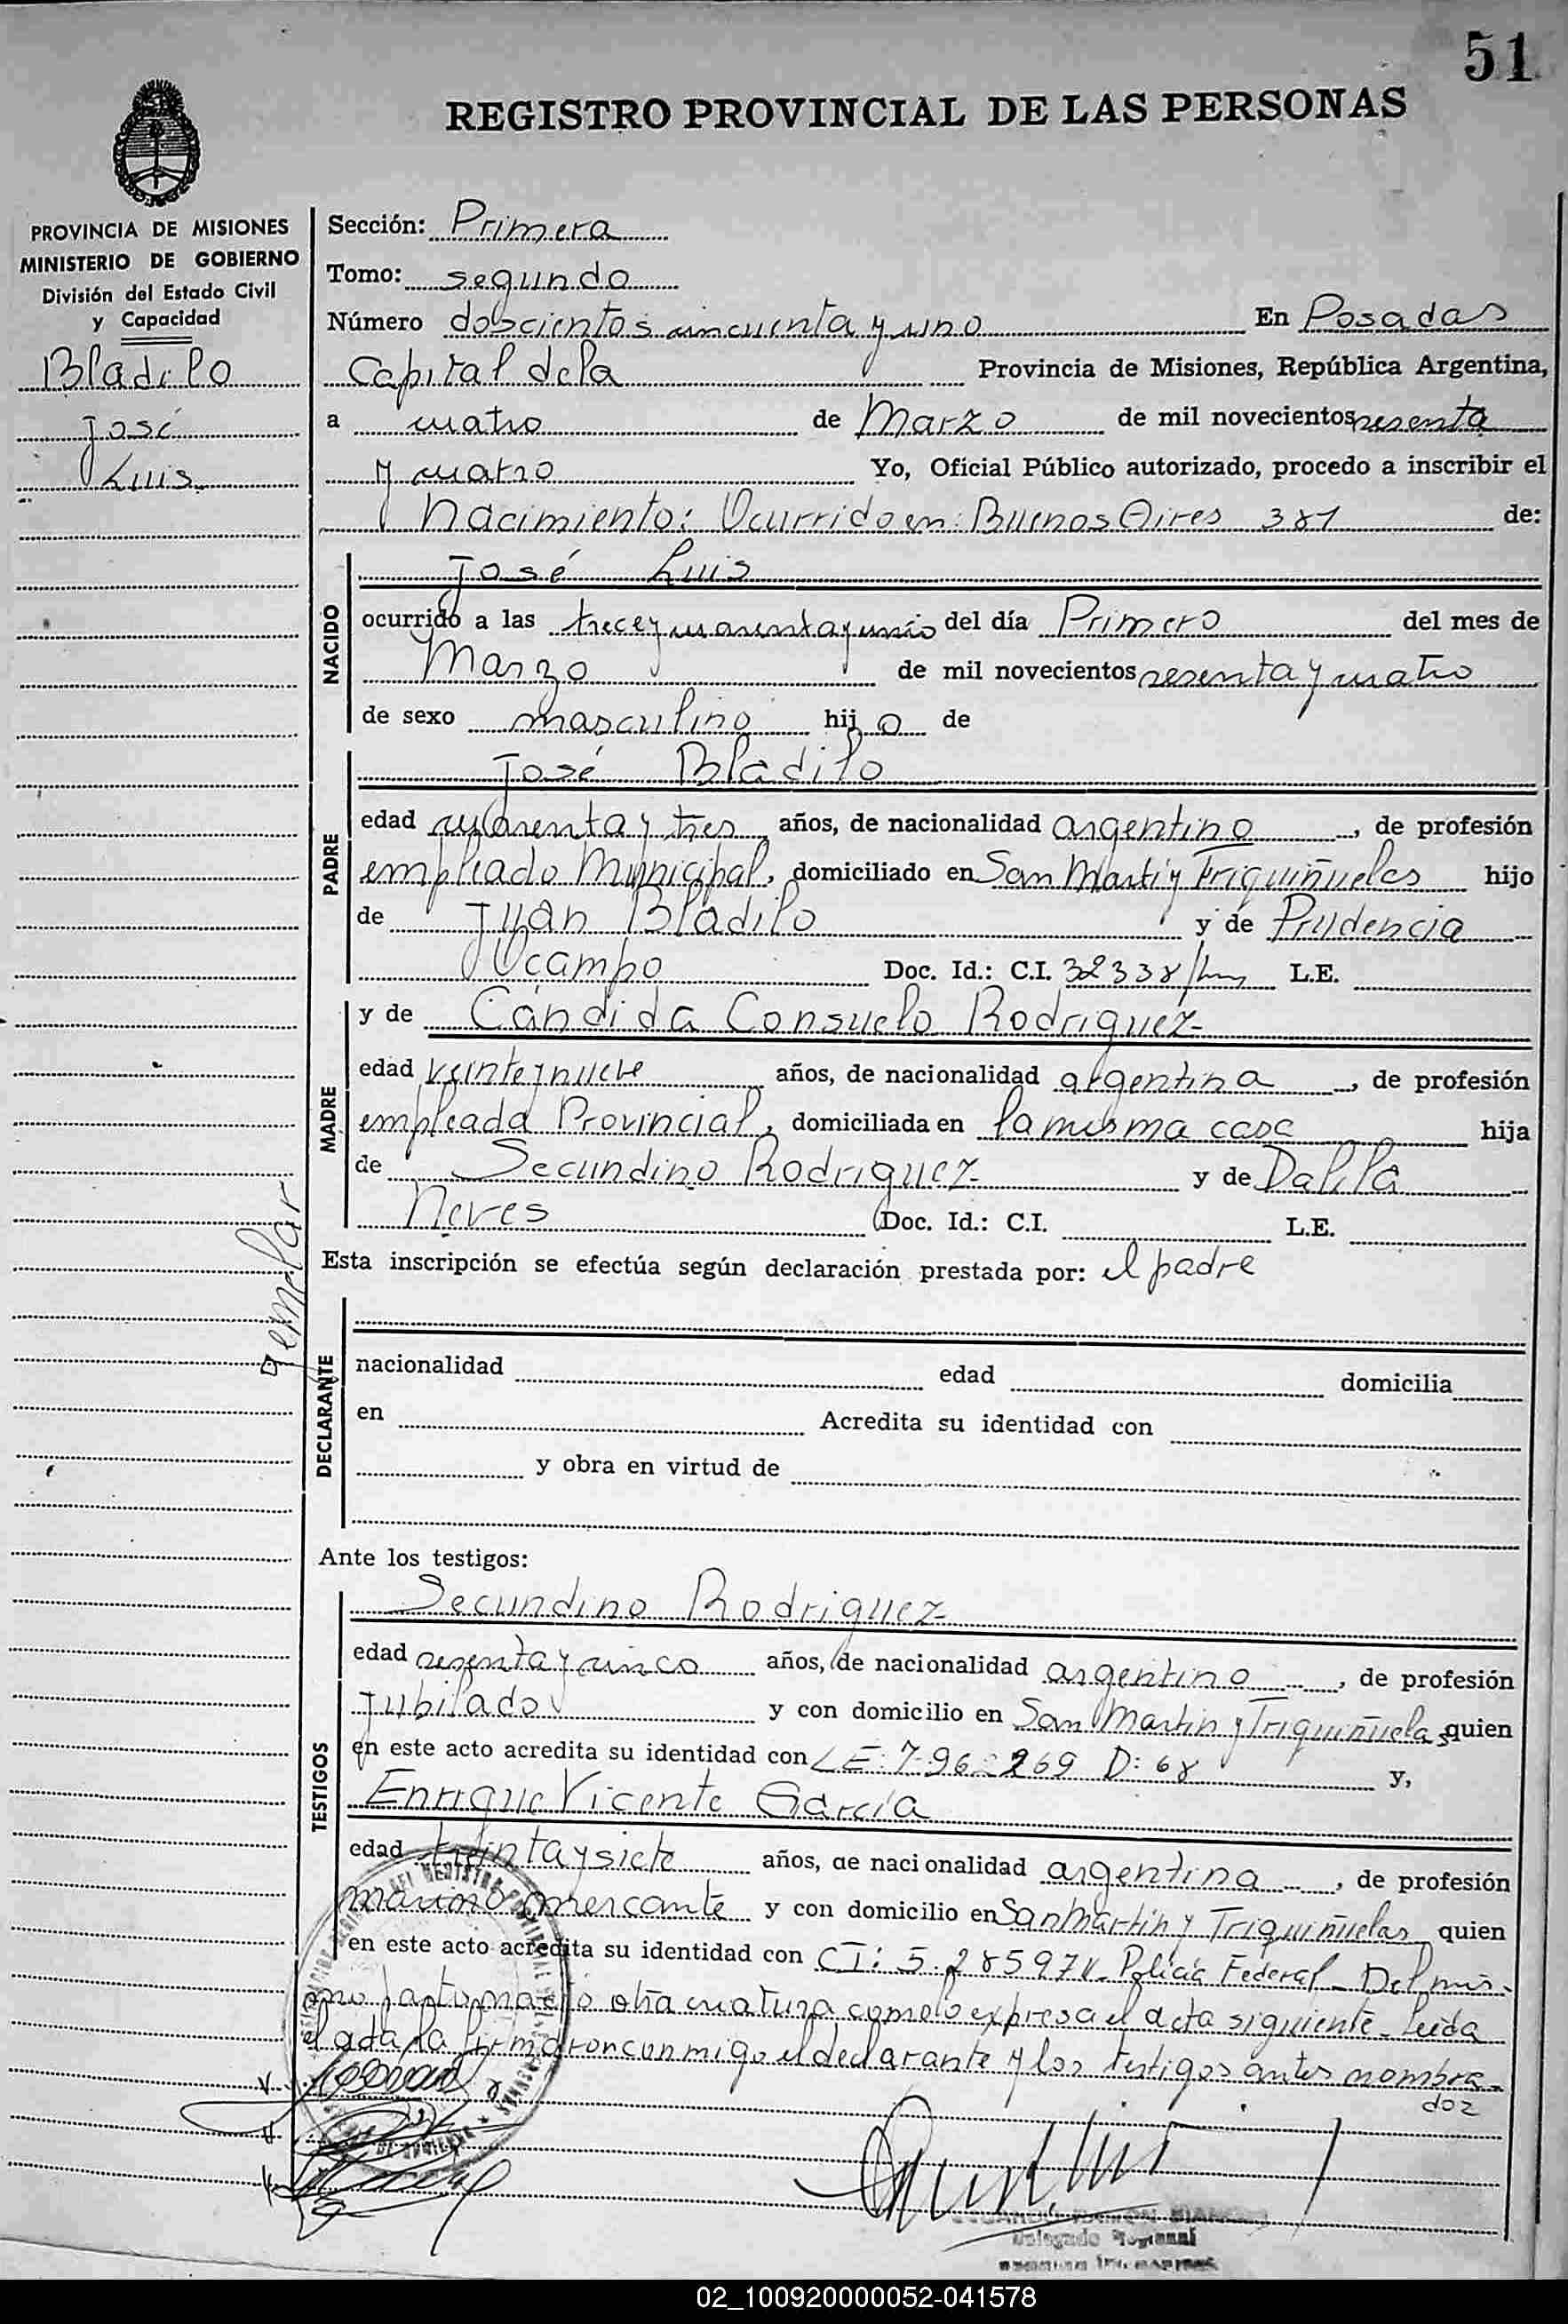 51
REGISTRO PROVINCIAL DE LAS PERSONAS
PROVINCIA DE MISIONES
MINISTERIO DE GOBIERNO
División del Estado Civil
y Capacidad
Bladilo
José
Luis
Sección: Primera
Tomo: segundo
Número doscientos cincuenta y uno En Posadas
Capital dela Provincia de Misiones, República Argentina,
a cuatro de Marzo de mil novecientos sesenta
y cuatro Yo, Oficial Público autorizado, procedo a inscribir el
Nacimiento: Ocurrido en: Buenos Aires 381 de:
NACIDO
José Luis
ocurrido a las trece y cuarenta y uno del día Primero del mes de
Marzo de mil novecientos sesenta y cuatro
de sexo masculino hij o de
PADRE
José Bladilo
edad cuarenta y tres años, de nacionalidad argentino, de profesión
empleado Municipal, domiciliado en San Martí y Triquiñueles hijo
de Juan Bladilo y de Prudencia
Ocampo Doc. Id.: C.I. 32338 L.E.
MADRE
y de Cándida Consuelo Rodriguez
edad veintey nueve años, de nacionalidad argentina, de profesión
empleada Provincial, domiciliada en la misma casa hija
de Secundino Rodriguez y de Dalila
Neves Doc. Id.: C.I. L.E.
Esta inscripción se efectúa según declaración prestada por: el padre
DECLARANTE
nacionalidad edad domicilia
en Acredita su identidad con
y obra en virtud de
Ante los testigos:
TESTIGOS
Secundino Rodriguez
edad sesenta y cinco años, de nacionalidad argentino, de profesión
Jubilado y con domicilio en San Martin y Triquiñuelas quien
en este acto acredita su identidad con LE: 7.96 269 D: 68 y,
Enrique Vicente García
edad treinta y siete años, de nacionalidad argentina, de profesión
marino mercante y con domicilio en San Martin y Triquiñuelas quien
en este acto acredita su identidad con CI: 5.28597 Policía Federal - Del mis-
mo parto nació otra criatura como lo expresa el acta siguiente - Leida
el acta la firmaron conmigo el declarante y los testigos antes nombra-
dos
Delegado Regional
02_100920000052-041578